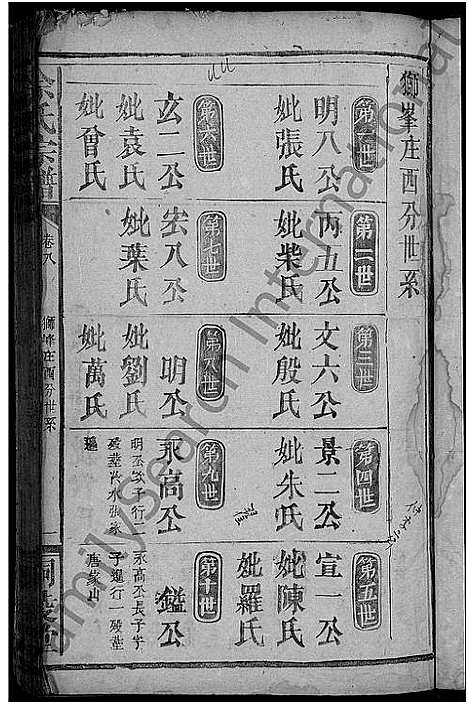 獅峯庄西分世系
第一世
明八公
妣張氏
第二世
丙五公
妣柴氏
第三世
文六公
妣殷氏
第四世
景二公
妣朱氏
第五世
宣一公
妣陳氏
妣羅氏
第六世
玄二公
妣袁氏
妣曾氏
第七世
宏八公
妣葉氏
第八世
明公
妣劉氏
妣萬氏
第九世
永高公
明公次子行
第十世
鎰公
永高公長子字
子 行一歿葬
唐家山
氏宗譜
卷八
獅峰庄西分世系
一
familysearch International